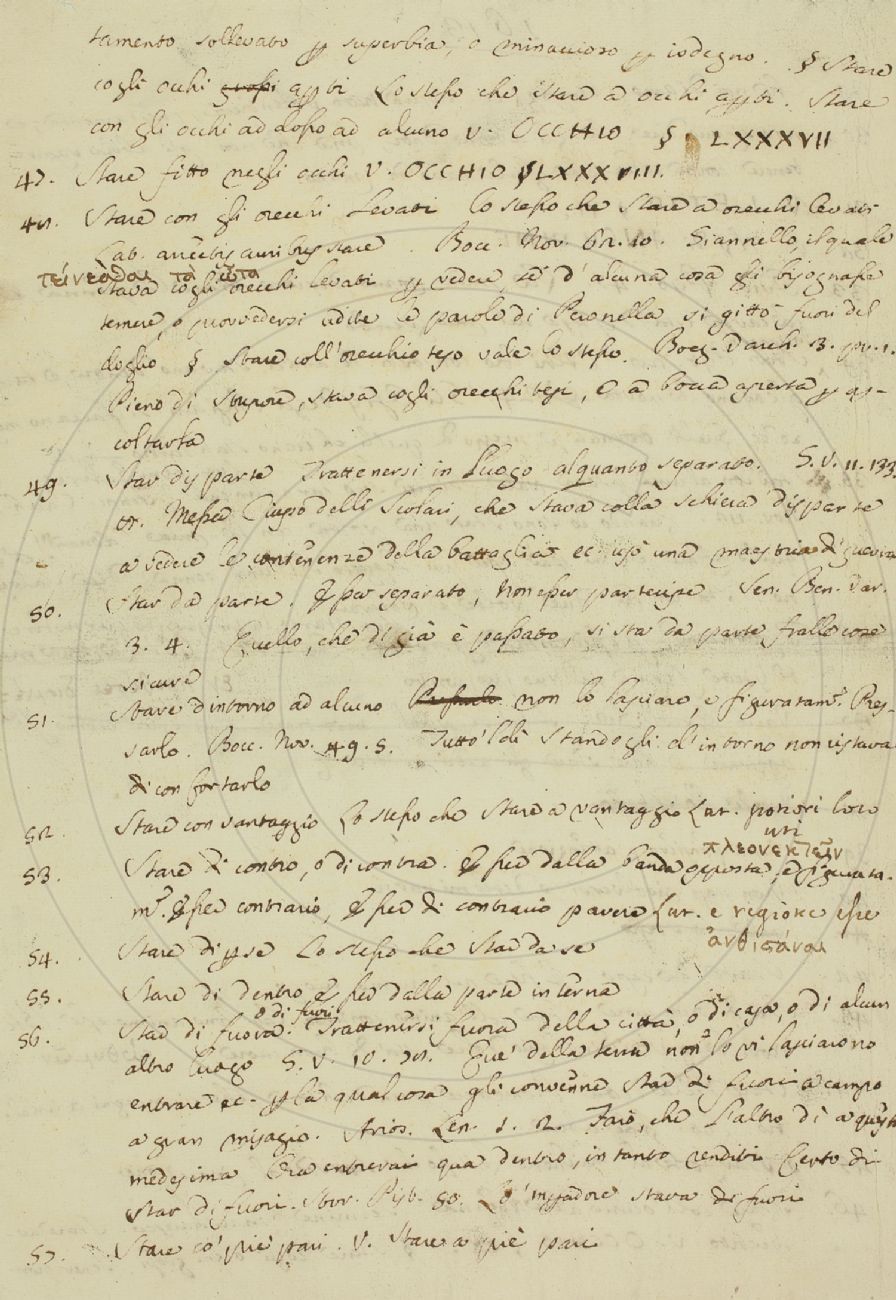 tamento sollevato p superbia, o minaccioso p isdegno. § Stare
cogli occhi grossi apti Lo stesso che Stare a occhi apti. Stare
con gli occhi addosso ad alcuno v. OCCHIO § LXXXVII
47. Stare fitto negli occhi v. OCCHIO § LXXXVIII.
48. Stare con gli orecchi Levati Lo stesso che Stare a orecchi levati
Lat. auribus stare. Bocc. Nov. 62. 10. Giannello, il quale
τείνεσθαι τὰ ὦτα
stava cogli orecchi levati p vedere, se d'alcuna cosa gli bisognasse
temere, o provvedersi udite le parole di Peronella si gittò fuori del
doglio § Stare coll'orecchio teso vale lo stesso. Boez. Varch. 3. pr. 1.
Pieno di stupore, stava cogli orecchi tesi, e a bocca aperta p as-
coltarla
49. Star disparte Trattenersi in Luogo alquanto separato. G. V. 11. 133.
Messer Ciupo delli Scolari, che stava colla schiera disparte
a vedere le contenenze della battaglia ec. usò una maestria di guerra
50. Star da parte. Esser separato, Non esser partecipe Sen. Ben. Var.
3. 4. Quello, che di già è passato, si sta da parte fralle cose
sicure
51. Stare dintorno ad alcuno non lo lasciare, e figuratam.e Pres-
sarlo. Bocc. Nov. 49. 5. Tutto'l dì standogli d'intorno non ristava
di confortarlo
52. Stare con vantaggio Lo stesso che Stare a vantaggio Lat. potiori loco
uti
πλεονεκτεῖν
53. Stare di contro, o di contra. Esser dalla banda opposta, e figurata-
m.e Esser contrario, Esser di contrario parere Lat. e regione esse
54. Stare di p se Lo stesso che Star da se
55. Stare di dentro Esser dalla parte interna
o di fuori
56. Star di fuora. Trattenersi fuora della città, o di casa, o di alcun
altro luogo G. V. 10. Que' della terra non lo vi lasciarono
entrare ec. p la qual cosa gli convenne star di fuori a campo
a gran misagio. Arios. Len. 5. 2. Farò, che l'altro dì a questa
medesima Ora entrerai qua dentro, in tanto renditi Certo di
star di fuori. Stor. Pist. 50. Lo'mpadore stava di fuori
57. Stare co' piè pari. v. Stare a piè pari